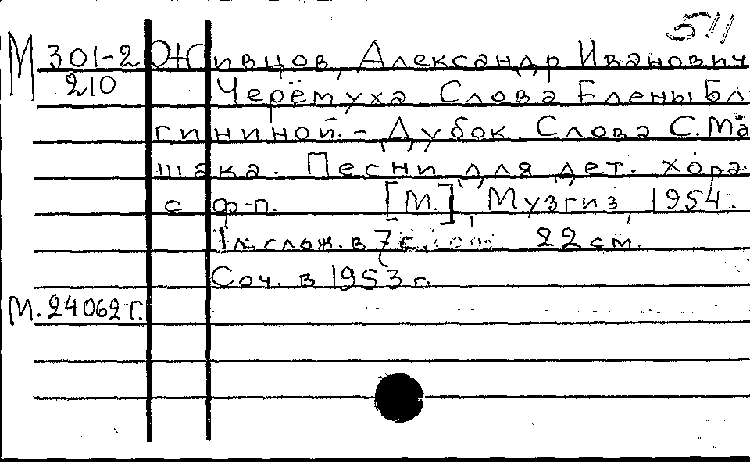 511
М 301-2 Живцов, Александр Иванович
210 Черёмуха Слова Елены Бла
гининой. - Дубок. Слова С. Ма
шака. Песни для дет. хора
с ф-п. [М.], Музгиз, 1954.
1 л. слож. в 7 с. 22 см.
Соч. в 1953 г.
М. 24062 г.